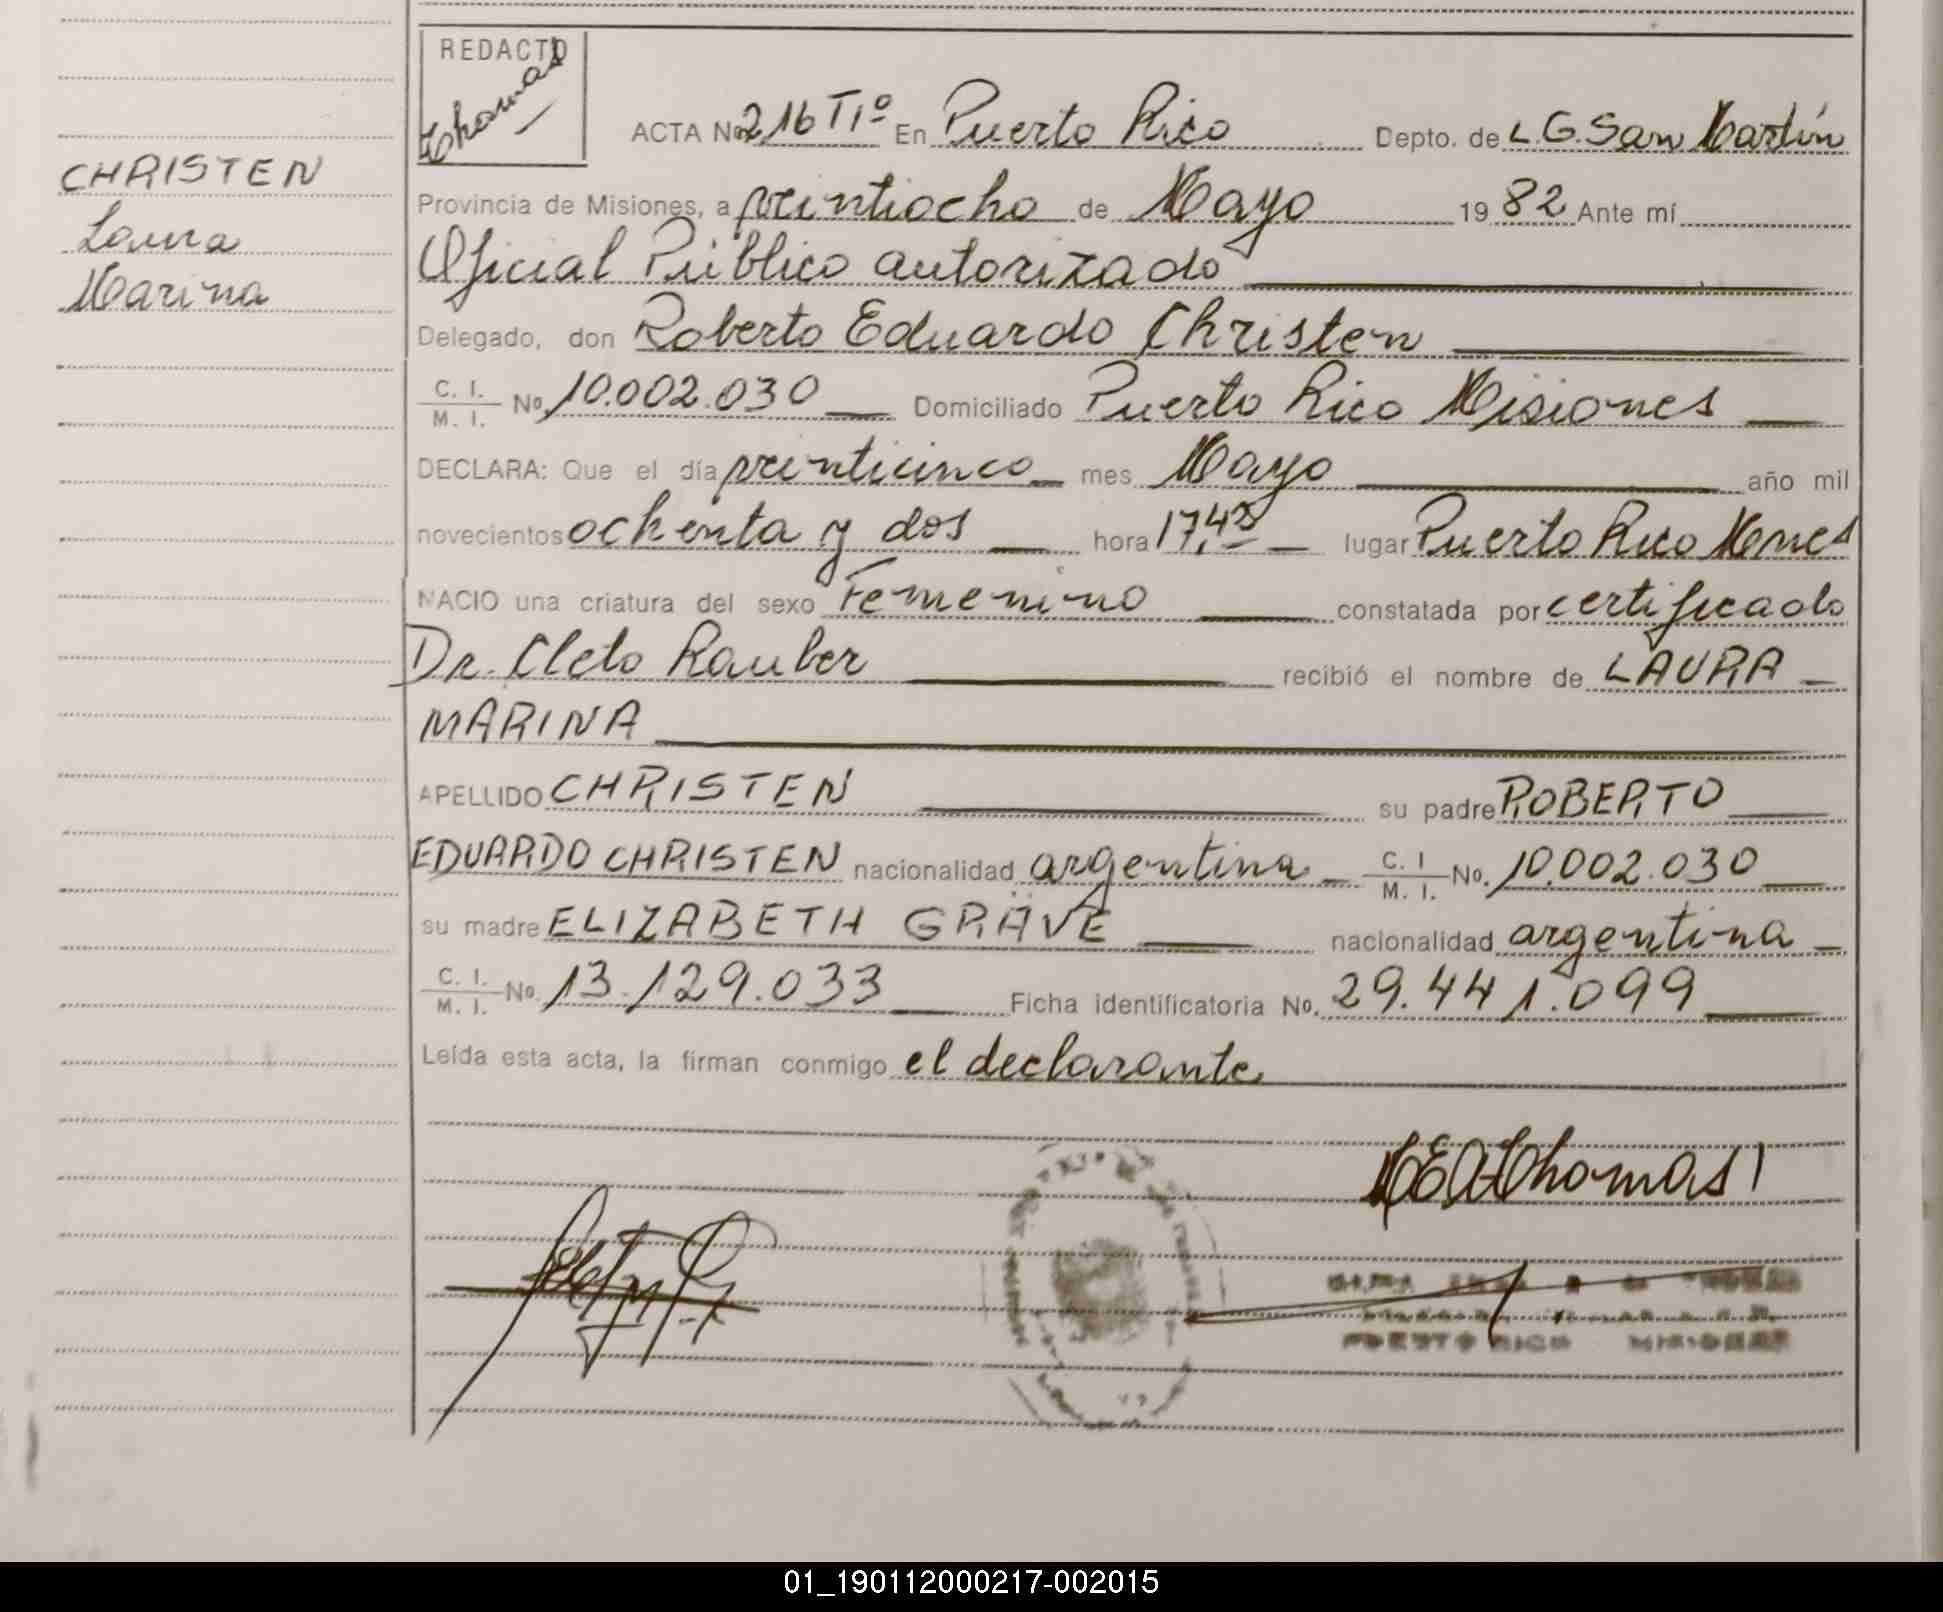 REDACTO
Thomas
ACTA No 216 TIº En Puerto Rico Depto. de L.G. San Martín
CHRISTEN
Laura
Marina
Provincia de Misiones, a veintiocho de Mayo 19 82 Ante mí
Oficial Público autorizado
Delegado, don Roberto Eduardo Christen
C. I. / M. I. No. 10.002.030 Domiciliado Puerto Rico Misiones
DECLARA: Que el día veinticinco mes Mayo año mil
novecientos ochenta y dos hora 17,45 lugar Puerto Rico Mnes
NACIO una criatura del sexo Femenino constatada por certificado
Dr. Cleto Rauber recibió el nombre de LAURA
MARINA
APELLIDO CHRISTEN su padre ROBERTO
EDUARDO CHRISTEN nacionalidad argentina C. I / M. I. No. 10.002.030
su madre ELIZABETH GRÄVE nacionalidad argentina
C. I. / M. I. No. 13.129.033 Ficha identificatoria No. 29.441.099
Leída esta acta, la firman conmigo el declarante
Thomas
PUERTO RICO MISIONES
01_190112000217-002015